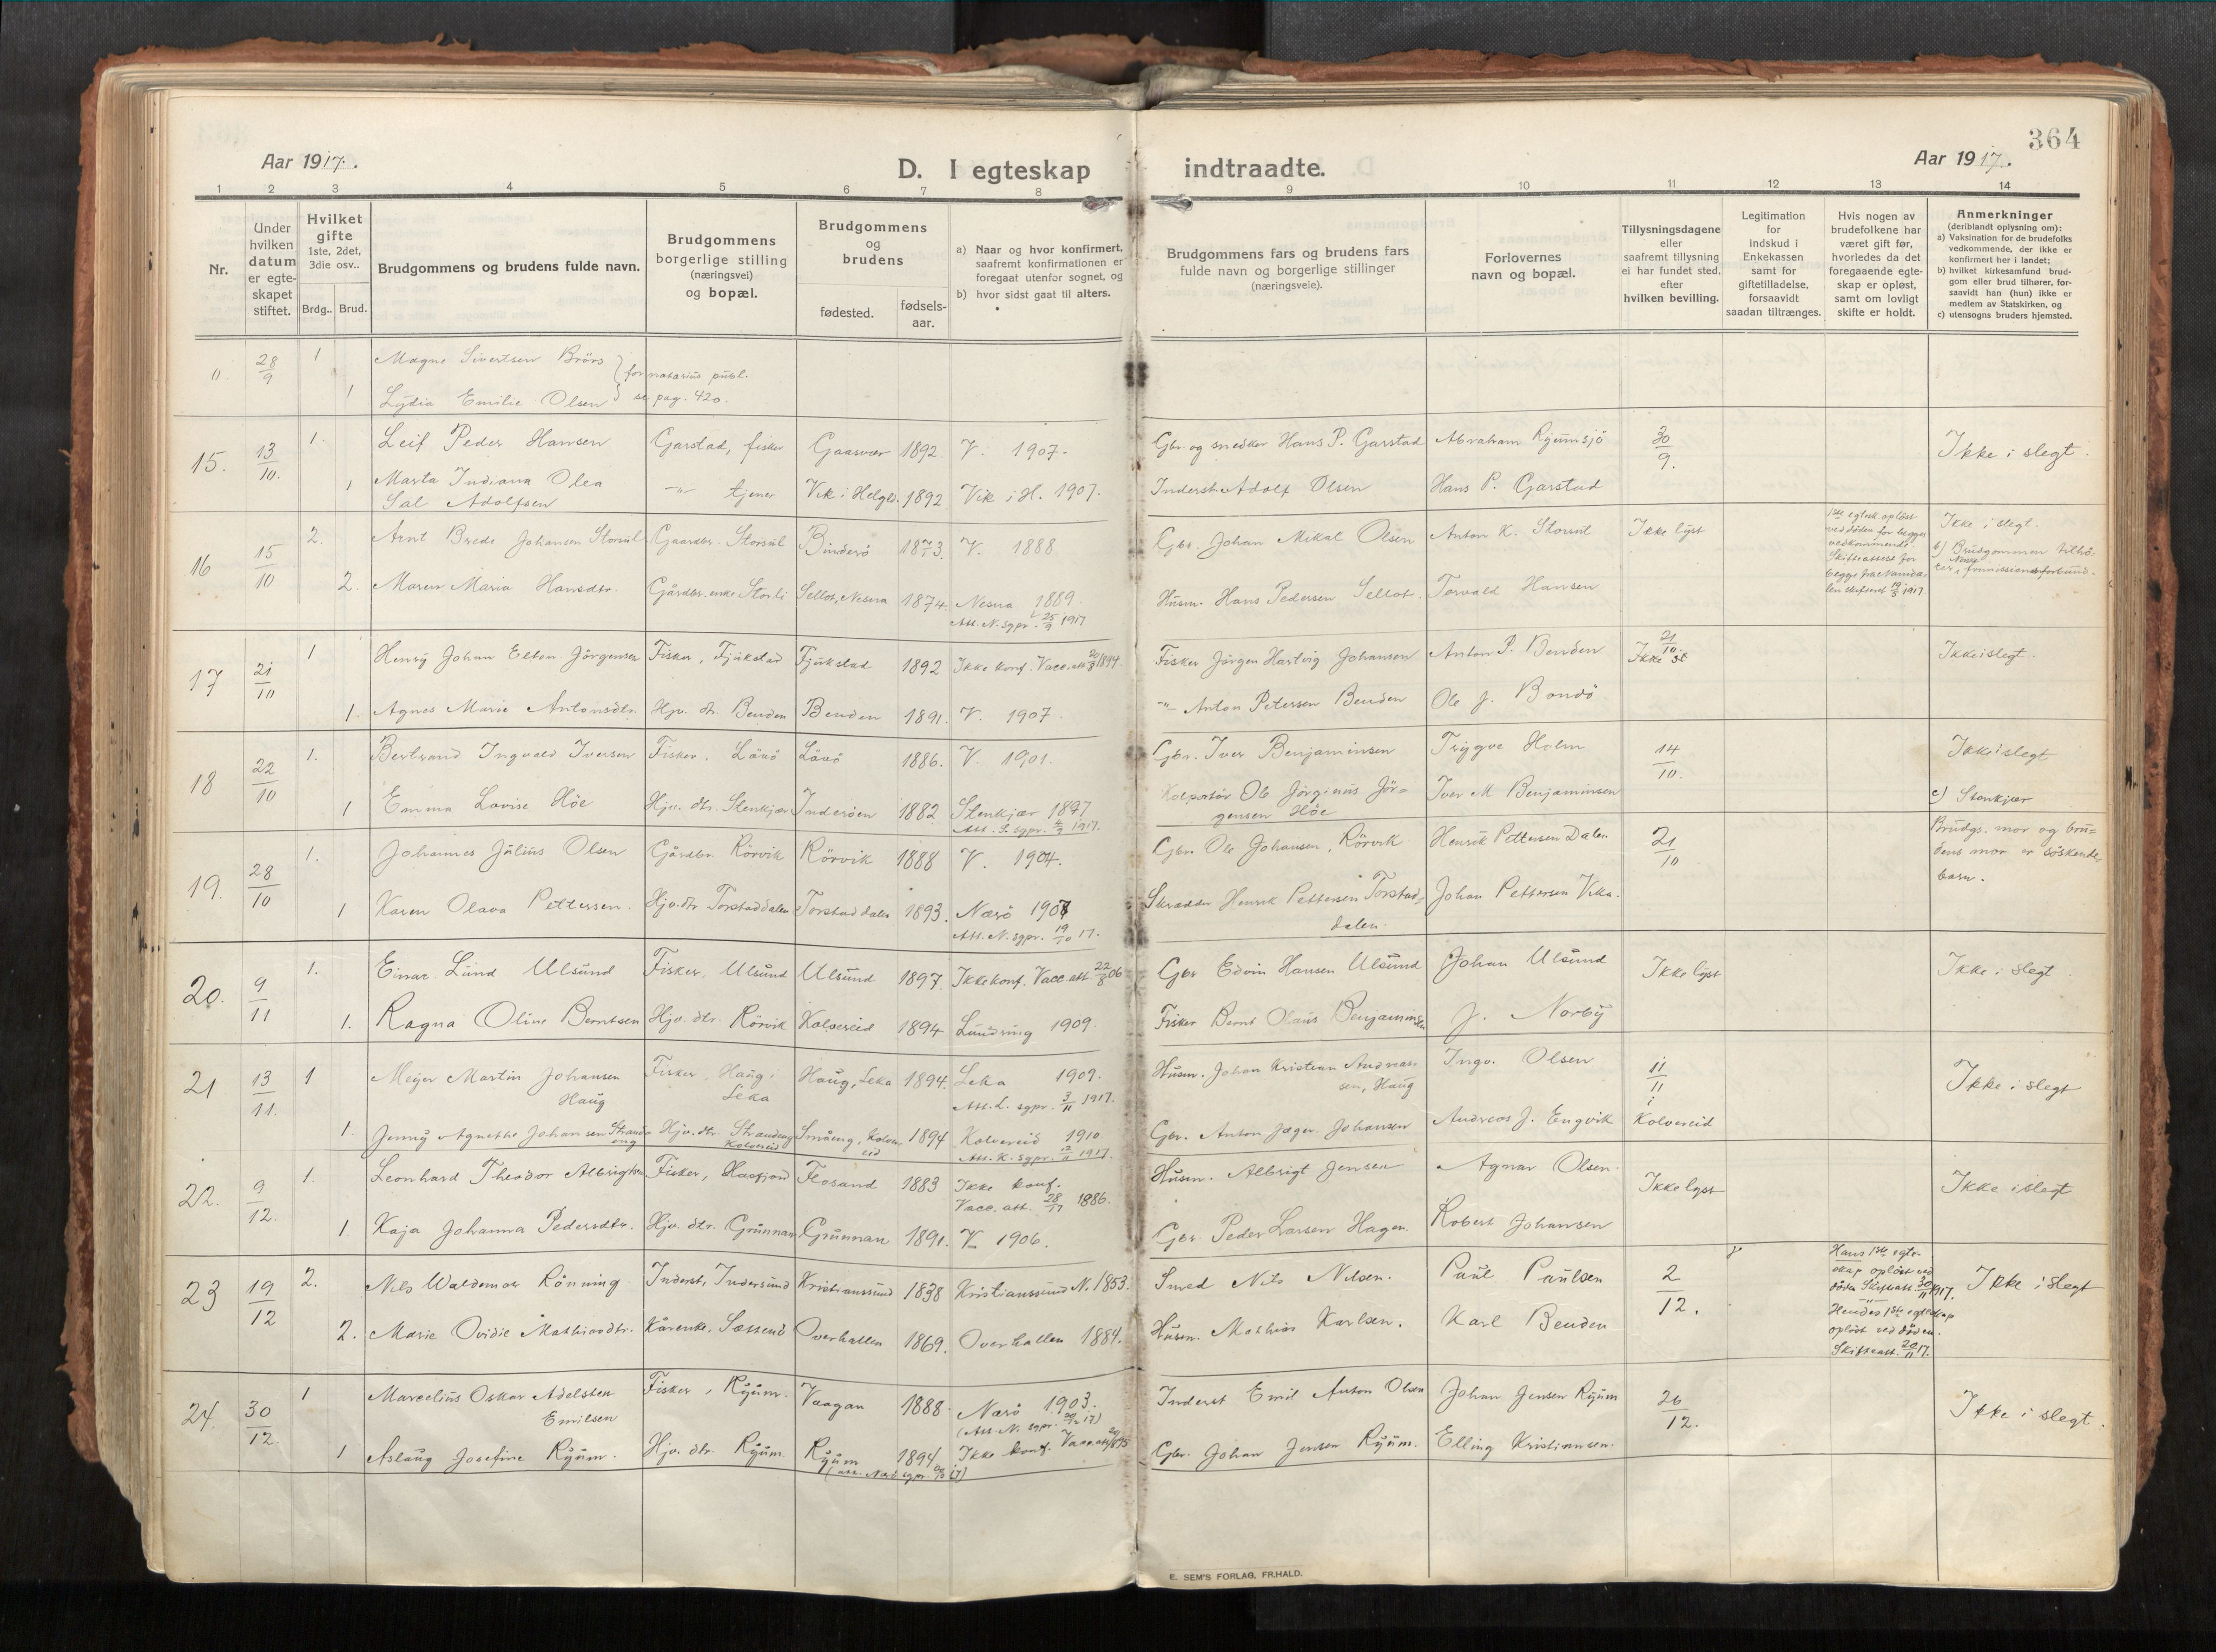 364
Aar 1917.
D. I egteskap indtraadte.
Aar 1917.
1 2 3 4 5 6 7 8 9 10 11 12 13 14
Nr.
Under hvilken datum er egte-skapet stiftet.
Hvilket gifte 1ste, 2det, 3die osv..
Brdg.. Brud.
Brudgommens og brudens fulde navn.
Brudgommens borgerlige stilling (næringsvei) og bopæl.
Brudgommens og brudens
fødested. fødsels-aar.
a) Naar og hvor konfirmert, saafremt konfirmationen er foregaat utenfor sognet, og
b) hvor sidst gaat til alters.
Brudgommens fars og brudens fars fulde navn og borgerlige stillinger (næringsveie).
Forlovernes navn og bopæl.
Tillysningsdagene eller saafremt tillysning ei har fundet sted, efter hvilken bevilling.
Legitimation for indskud i Enkekassen samt for giftetilladelse, forsaavidt saadan tiltrænges.
Hvis nogen av brudefolkene har været gift før, hvorledes da det foregaaende egte-skap er opløst, samt om lovligt skifte er holdt.
Anmerkninger (deriblandt oplysning om):
a) Vaksination for de brudefolks vedkommende, der ikke er konfirmert her i landet;
b) hvilket kirkesamfund brud-gom eller brud tilhører, for-saavidt han (hun) ikke er medlem av Statskirken, og
c) utensogns bruders hjemsted.
" 28/9 1 Magne Sivertsen Brörs } for notarius publ.
1 Lydia Emilie Olsen } se pag. 420.
15. 13/10. 1. Leif Peder Hansen Garstad, fisker Gaasvær 1892 V. 1907. Gbr. og snedker Hans P. Garstad Abraham Ryumsjö 30/9. Ikke i slegt.
1 Marta Indiana Olea Sal Adolfsen -"- tjener Vik i Helgel. 1892 Vik i H. 1907. Inderst Adolf Olsen Hans P. Garstad
16 15/10 2. Arnt Brede Johansen Storsul Gaardbr. Storsul Binderö 1873 V. 1888 Gbr. Johan Mikal Olsen Anton K. Storsul Ikke lyst 1ste egtesk. opløst ved döden for begges vedkommende. Skifteattest for begge fra Namdalen skifteret 19/5 1917. Ikke i slegt. b) Brudgommen tilhörer Norsk missionsforbund.
2. Maren Maria Hansdtr. Gårdbr. enke Storli Sellot, Nesna 1874. Nesna 1889. Att. N. sgpr. 25/9 1917 Husm. Hans Pedersen Sellot. Torvald Hansen
17 21/10 1 Henry Johan Elton Jörgensen Fisker, Fjukstad Fjukstad 1892 Ikke konf. Vacc. att. 1894 Fisker Jörgen Hartvig Johansen Anton P. Benden 21/10 Ikke i slegt.
1. Agnes Marie Antonsdtr. Hjv. dtr. Benden Benden 1891. V. 1907. -"- Anton Petersen Benden Ole J. Bondö
18 22/10 1. Bertrand Ingvald Iversen Fisker. Lövö Lövö 1886. V. 1901. Gbr. Iver Benjaminsen Trygve Holm 14/10. Ikke i slegt
1 Emma Lovise Höe Hjv. dtr. Stenkjær Inderöen 1882 Stenkjær 1897 Att. S. sgpr. 4/9 1917. Kolportör Ole Jörginus Jör=gensen Höe Iver M Benjaminsen c) Stenkjær
19. 28/10 1. Johannes Julius Olsen Gårdbr. Rörvik Rörvik 1888 V. 1904. Gbr. Ole Johansen, Rörvik Henrik Pettersen Dalen 21/10 Brudgs. mor og bru=dens mor er söskende=barn.
1 Karen Olava Pettersen. Hjv. dtr Torstaddalen Torstaddalen 1893. Nærö 1908 Att. N. sgpr. 19/10 17. Skrædder Henrik Pettersen Torstad=dalen. Johan Pettersen Vika.
20. 9/11 1. Einar Lund Ulsund Fisker, Ulsund Ulsund 1897. Ikke konf. Vacc. att 22/8 06 Gbr Edvin Hansen Ulsund Johan Ulsund Ikke lyst Ikke i slegt.
1. Ragna Oline Berntsen Hjv. dtr. Rörvik Kolvereid 1894 Lundring 1909. Fisker Bernt Olaus Benjaminsen J. Norby
21 13/11. 1 Meyer Martin Johansen Haug Fisker, Haug, Leka Haug, Leka 1894. Leka 1909. Att. L. sgpr. 3/11 1917. Husm. Johan Kristian Andreassen, Haug Ingv. Olsen 11/11 i Kolvereid Ikke i slegt
1. Jenny Agnethe Johansen Strandeng Hjv. dtr. Strandeng Kolvereid Småeng, Kolvereid 1894 Kolvereid 1910 Att. K. sgpr. 12/11 1917. Gbr. Anton Jæger Johansen Andreas J. Engvik
22. 9/12. 1. Leonhard Theodor Albrigtsen Fisker, Hasfjord Flosand 1883 Ikke konf. Vacc. att. 28/11 1886. Husm. Albrigt Jensen Agnar Olsen. Ikke lyst Ikke i slegt
1. Kaja Johanna Pedersdtr. Hjv. dtr. Grunnan Grunnan 1891. V 1906. Gbr. Peder Larsen Hagen. Robert Johansen
23 19/12 2. Nils Waldemar Rönning Inderst, Indersund Kristianssund 1838 Kristianssund N. 1853. Smed Nils Nilsen. Paul Paulsen 2/12. Hans 1ste egteskap oplöst ved döden Skifteatt. 30/11 1917. Ikke i slegt
2. Marie Ovidie Mathiasdtr. Kårenke, Sættend Overhallen 1869. Overhallen 1884. Husm. Mathias Karlsen. Karl Benden Hendes 1ste egteskap oplöst ved döden. Skifteatt. 20/11 17.
24. 30/12 1 Marcelius Oskar Adelsten Emilsen Fisker, Ryum. Vaagan 1888. Nærö 1903. (Att. N. sgpr. 17) Inderst Emil Anton Olsen Johan Jensen Ryum 26/12. Ikke i slegt.
1 Aslaug Josefine Ryum. Hjv. dtr. Ryum Ryum 1894. Ikke konf. Vacc. att. Gbr. Johan Jensen Ryum. Elling Kristiansen.
E. SEM'S FORLAG, FR.HALD.